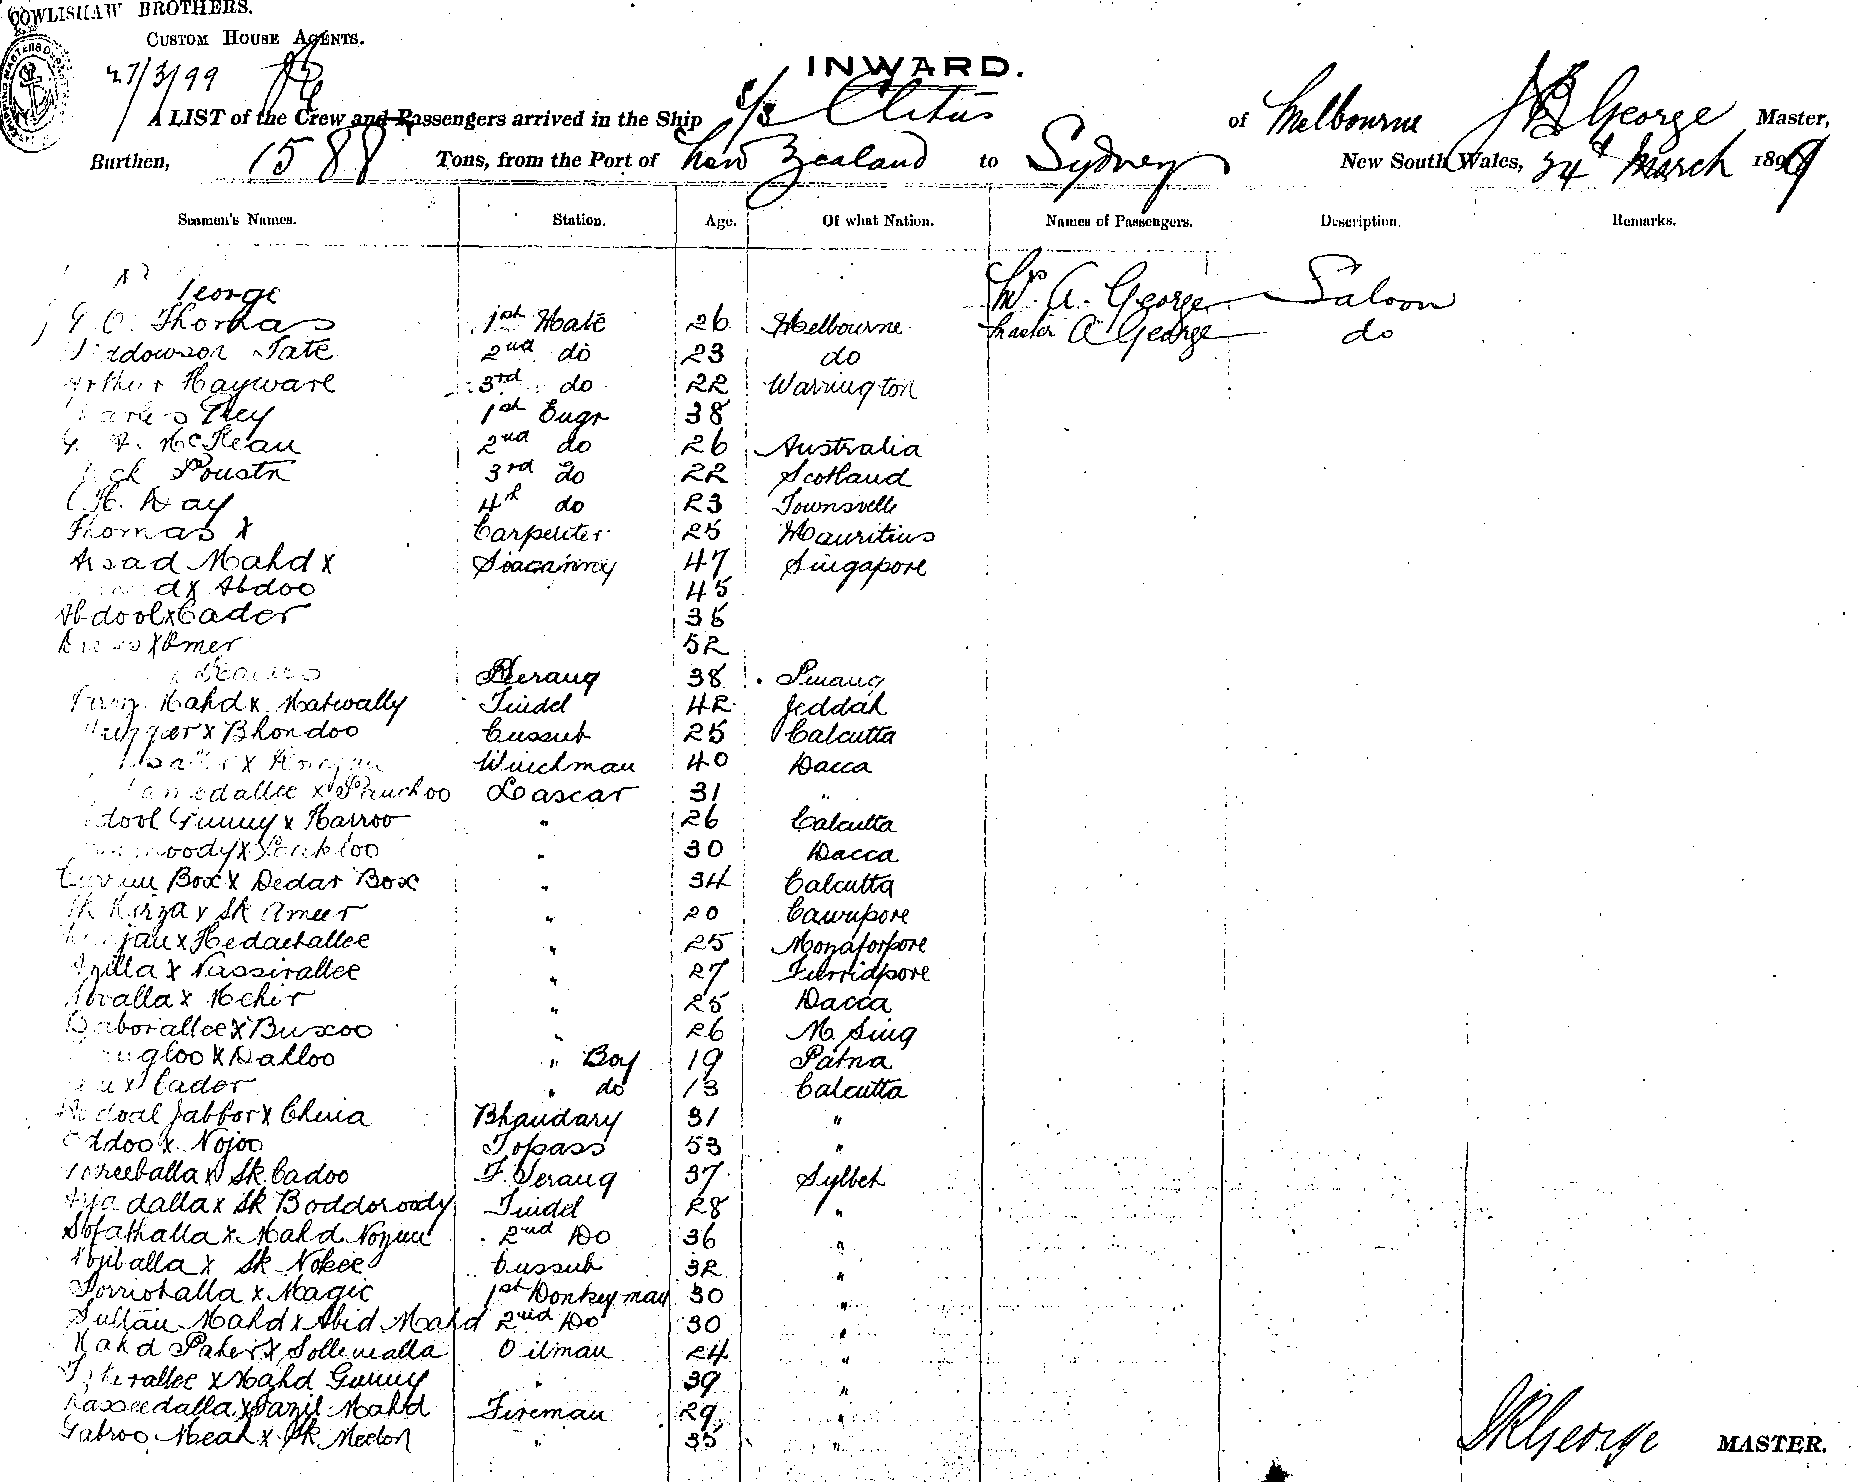 COWLISHAW BROTHERS.
CUSTOM HOUSE AGENTS.
27/3/99
INWARD.
A LIST of the Crew and Passengers arrived in the Ship s/s Clitus of Melbourne George Master,
Burthen, 1588 Tons, from the Port of New Zealand to Sydney New South Wales, 24th March 1899
Seamen's Names. Station. Age. Of what Nation. Names of Passengers. Description. Remarks.
George Mrs A. George Saloon
G. O. Thomas 1st Mate 26 Melbourne Master A George do
Tate 2nd do 23 do
Arthur Hayware 3rd do 22 Warrington
1st Engr 38
2nd do 26 Australia
3rd do 22 Scotland
Day 4th do 23 Townsville
Thomas X Carpenter 25 Mauritius
Assad Mahd X Seacunny 47 Singapore
X Abdoo 45
Abdool X Cader 36
X Omer 52
Serang 38 Pinang
Mahd X Matwally Tindel 42 Jeddah
X Bhondoo Cussub 25 Calcutta
X Winchman 40 Dacca
X Panchoo Lascar 31 "
Gunny X Harroo " 26 Calcutta
X " 30 Dacca
Box X Dedar Box " 34 Calcutta
Sk Mirza X Sk Ameer " 20 Cawnpore
X Hedaetallee " 25 Mozaforpore
X Nassirallee " 27 Furridpore
X Mehir " 25 Dacca
Baborallee X Buxoo " 26 M. Sing
X Dalloo " Boy 19 Patna
X Cader " do 13 Calcutta
Abdoal Jabbor X China Bhandary 31 "
X Nojoo Topass 53 "
X Sk Cadoo F. Serang 37 Sylhet
X Sk Boddoroody Tindel 28 "
Sofathalla X Mahd Nozim 2nd Do 36 "
Nojiballa X Sk Nokee Cussub 32 "
X Magic 1st Donkeyman 30 "
Sultan Mahd X Abid Mahd 2nd Do 30 "
Mahd X Sollemalla Oilman 24 "
X Mahd Gunny " 39 "
X Fazil Mahd Fireman 29 "
Gabroo Meah X Sk Meelon " 35 "
George MASTER.